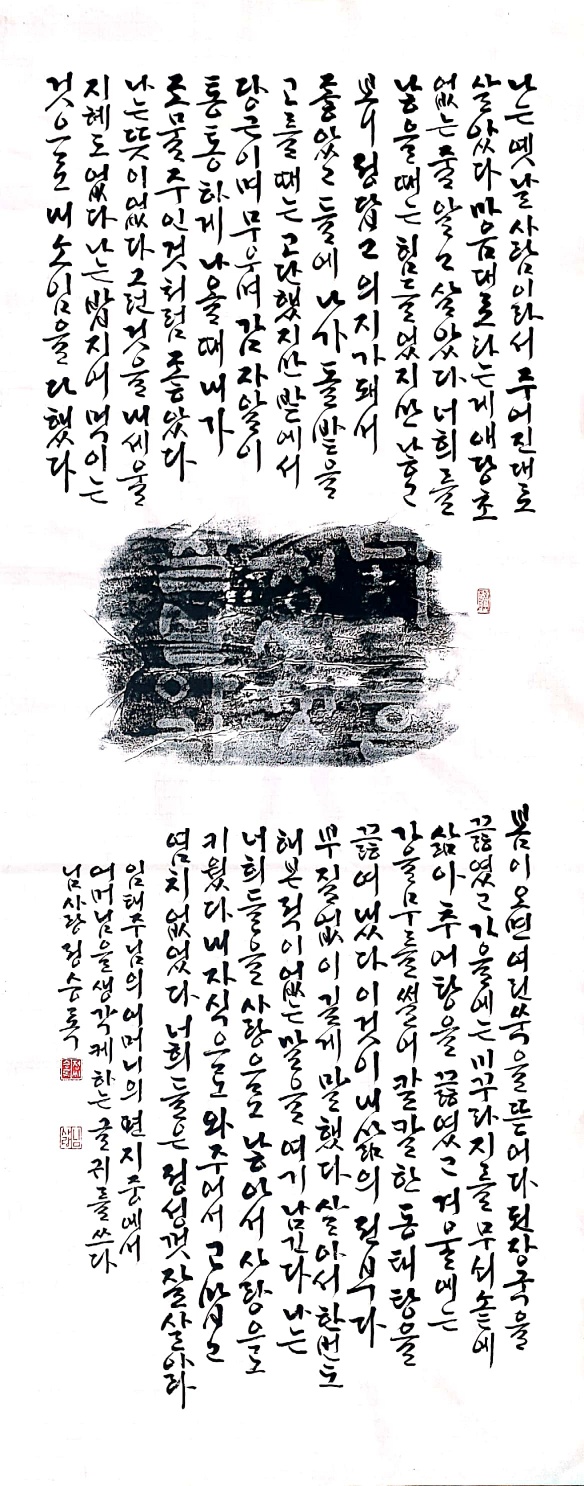 나는 옛날 사람이라서 주어진대로
살았다 마음대로라는게 애당초
없는 줄 알고 살았다 너희를
낳을 때는 힘들었지만 낳고
보니 정답고 의지가 돼서
좋았고 들에 나가 돌밭을
고를 때는 고단했지만 밭에서
당근이며 무우며 감자알이
통통하게 나올때 내가
조물주인것처럼 좋았다
나는 뜻이 없다 그런것을 내세울
지혜도 없다 나는 밥지어 먹이는
것으로 내 소임을 다했다
너희들은
정성껏
잘살아라
봄이 오면 여린 쑥을 뜯어다 된장국을
끓였고 가을에는 미꾸라지를 무쇠솥에
삶아 추어탕을 끓였고 겨울에는
가을무우를 썰어 칼칼한 동태탕을
끓여냈다 이것이 내 삶의 전부다
부질없이 길게 말했다 살아서 한번도
해본적이 없는 말을 여기 남긴다 나는
너희들을 사랑으로 낳아서 사랑으로
키웠다 내 자식으로 와주어서 고맙고
염치없었다 너희들은 정성껏 잘살아라
임태주님의 어머니의 편지중에서
어머님을 생각케하는 글귀를 쓰다
님사랑 정승톡